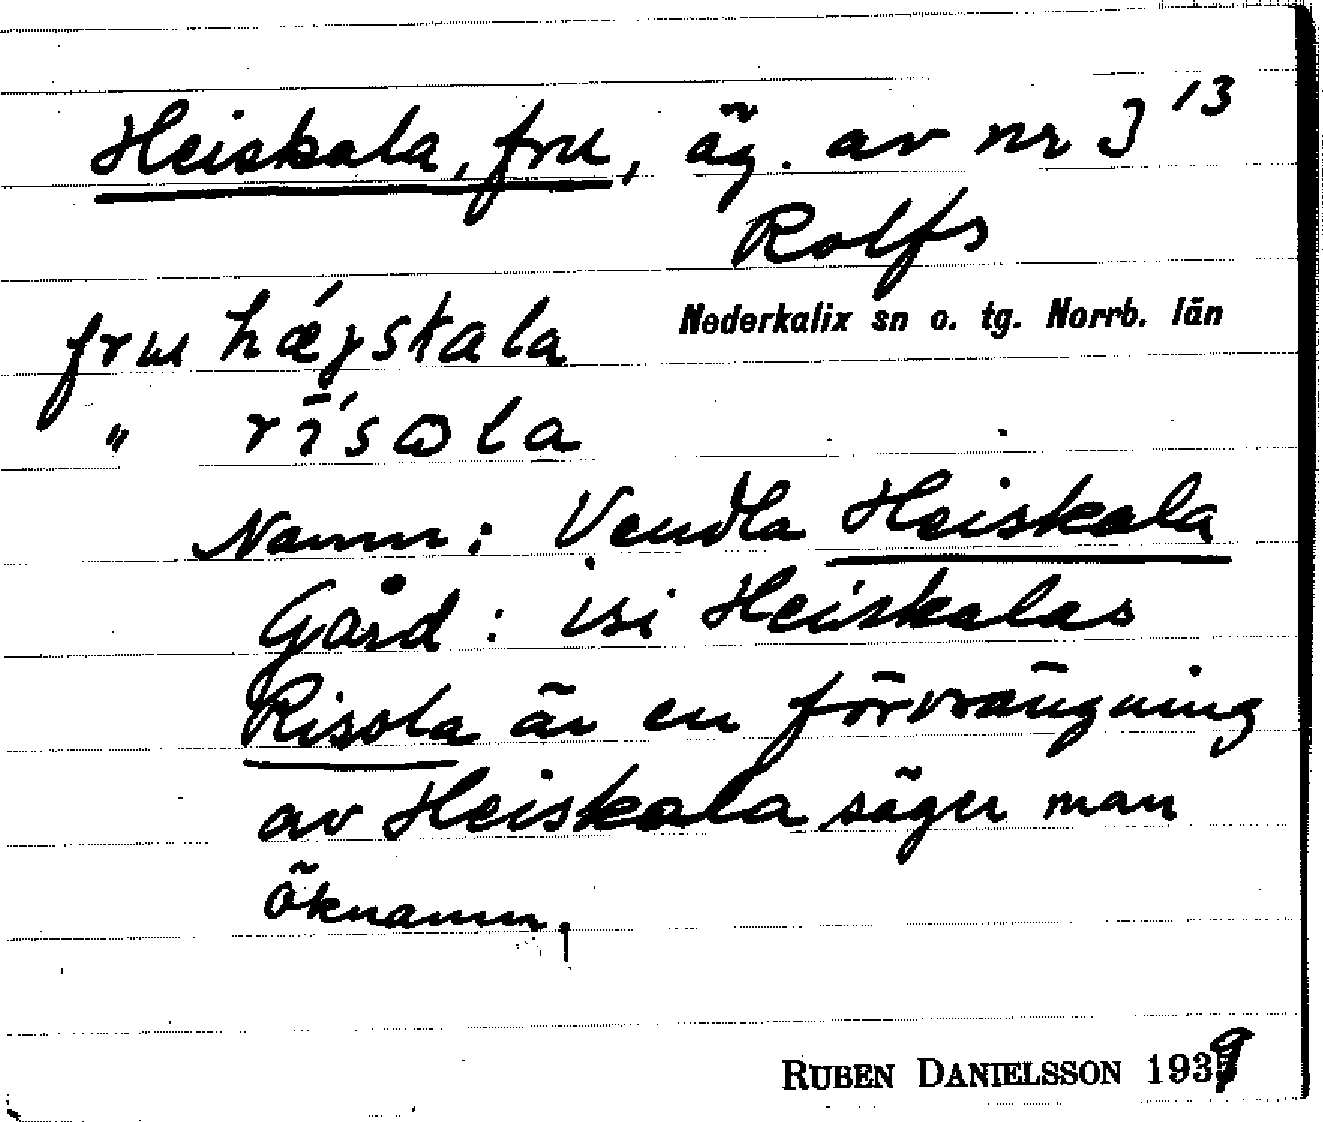 Heiskala, fru, äg. av nr 3¹³
Rolfs
Nederkalix sn o. tg. Norrb. län
fru hǽjskala
" rī́sωla
Namn: Vendla Heiskala
Gård: isi Heiskalas
Risola är en förvrängning
av Heiskala säger man
Öknamn.
RUBEN DANIELSSON 1939